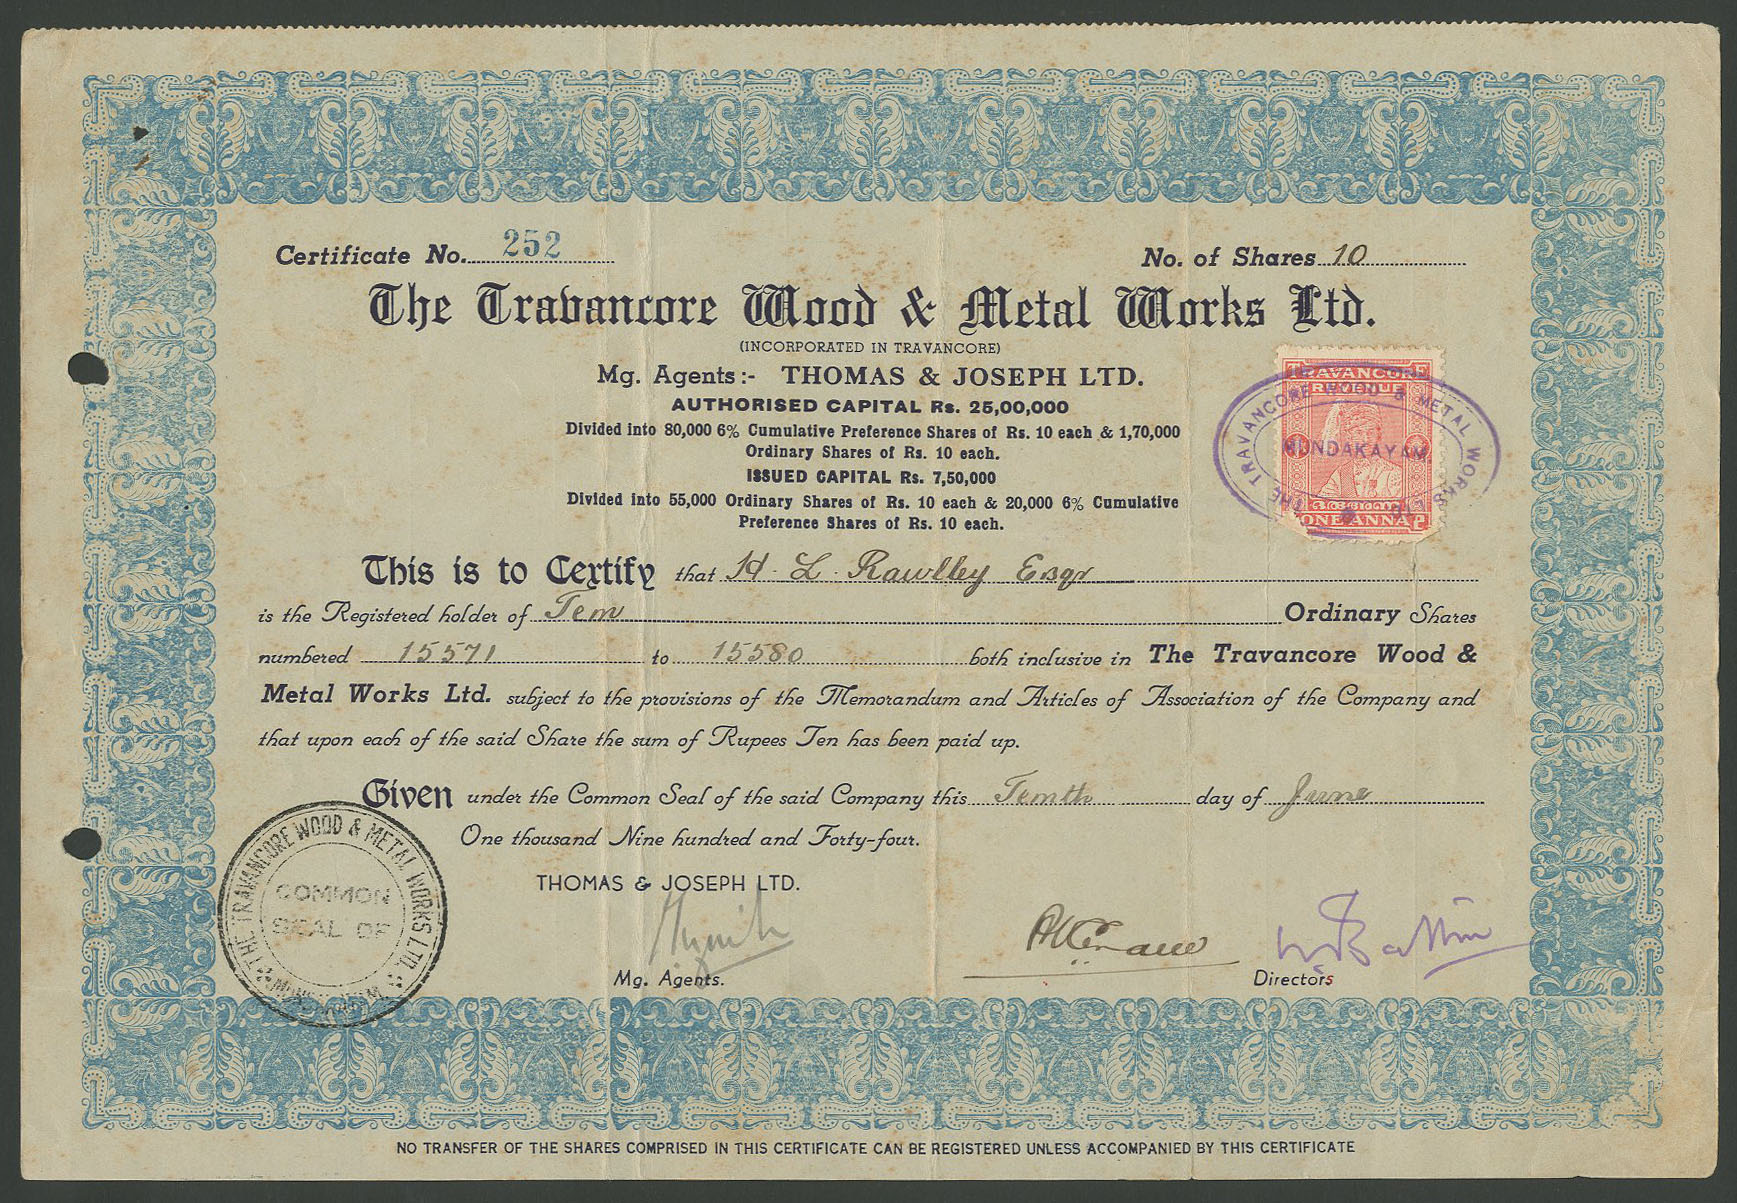 Certificate No. 252
No. of Shares 10
The Travancore Wood & Metal Works Ltd.
(INCORPORATED IN TRAVANCORE)
Mg. Agents :- THOMAS & JOSEPH LTD.
AUTHORISED CAPITAL Rs. 25,00,000
Divided into 80,000 6% Cumulative Preference Shares of Rs. 10 each & 1,70,000
Ordinary Shares of Rs. 10 each.
ISSUED CAPITAL Rs. 7,50,000
Divided into 55,000 Ordinary Shares of Rs. 10 each & 20,000 6% Cumulative
Preference Shares of Rs. 10 each.
TRAVANCORE
REVENUE
ONE ANNA
THE TRAVANCORE WOOD & METAL WORKS LTD.
MUNDAKAYAM
This is to Certify that H. L. Rawlley Esqr
is the Registered holder of Ten Ordinary Shares
numbered 15571 to 15580 both inclusive in The Travancore Wood &
Metal Works Ltd. subject to the provisions of the Memorandum and Articles of Association of the Company and
that upon each of the said Share the sum of Rupees Ten has been paid up.
Given under the Common Seal of the said Company this Tenth day of June
One thousand Nine hundred and Forty-four.
THE TRAVANCORE WOOD & METAL WORKS LTD.
COMMON
SEAL OF
MUNDAKAYAM
THOMAS & JOSEPH LTD.
Mg. Agents.
Directors
NO TRANSFER OF THE SHARES COMPRISED IN THIS CERTIFICATE CAN BE REGISTERED UNLESS ACCOMPANIED BY THIS CERTIFICATE